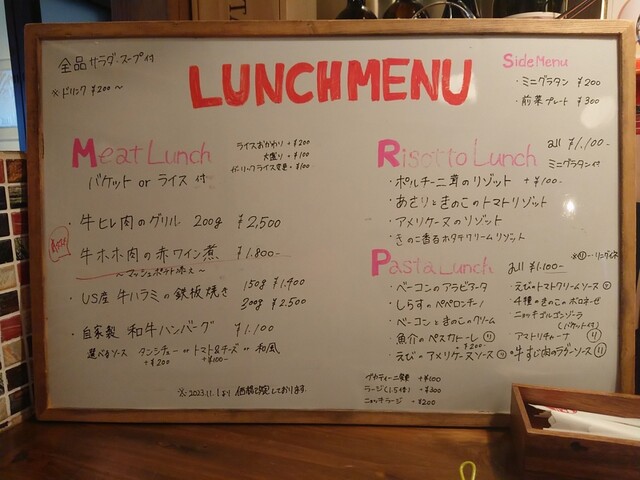 全品サラダ・スープ付
※ドリンク ¥200〜
LUNCH MENU
Side Menu
・ミニグラタン ¥200
・前菜プレート ¥300
Meat Lunch
バケット or ライス 付
ライスおかわり +¥200
大盛り +¥100
ガーリックライス変更 +¥100
・牛ヒレ肉のグリル 200g ¥2,500
牛ホホ肉の赤ワイン煮 ¥1,800-
〜マッシュポテト添え〜
・US産 牛ハラミの鉄板焼き 150g ¥1,900
300g ¥2,500
・自家製 和牛ハンバーグ ¥1,100
選べるソース タンシチュー or トマト&チーズ or 和風
+¥200 +¥100-
※2023.11.1より 価格変更しております。
Risotto Lunch all ¥1,100-
ミニグラタン付
・ポルチーニ茸のリゾット +¥100-
・あさりときのこのトマトリゾット
・アメリケーヌのリゾット
・きのこ香るホタテクリームリゾット
Pasta Lunch all ¥1,100-
※リ…リングイネ
・ベーコンのアラビアータ
・しらすのペペロンチーノ
・ベーコンときのこのクリーム
・魚介のペスカトーレ リ
+¥200-
・えびのアメリケーヌソース リ
・えびのトマトクリームソース リ
・4種のきのこのボロネーゼ
・ニョッキゴルゴンゾーラ
(バケット付)
・アマトリチャーナ リ
・牛すじ肉のラグーソース リ
+¥100
ラージ(1.5倍) +¥300
ニョッキラージ +¥200